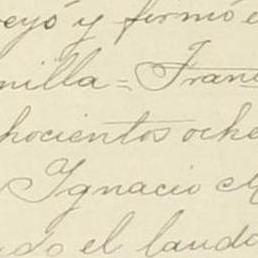 eyó y firmó e
nilla = Fran
hocientos oche
Ignacio M
do el laudo